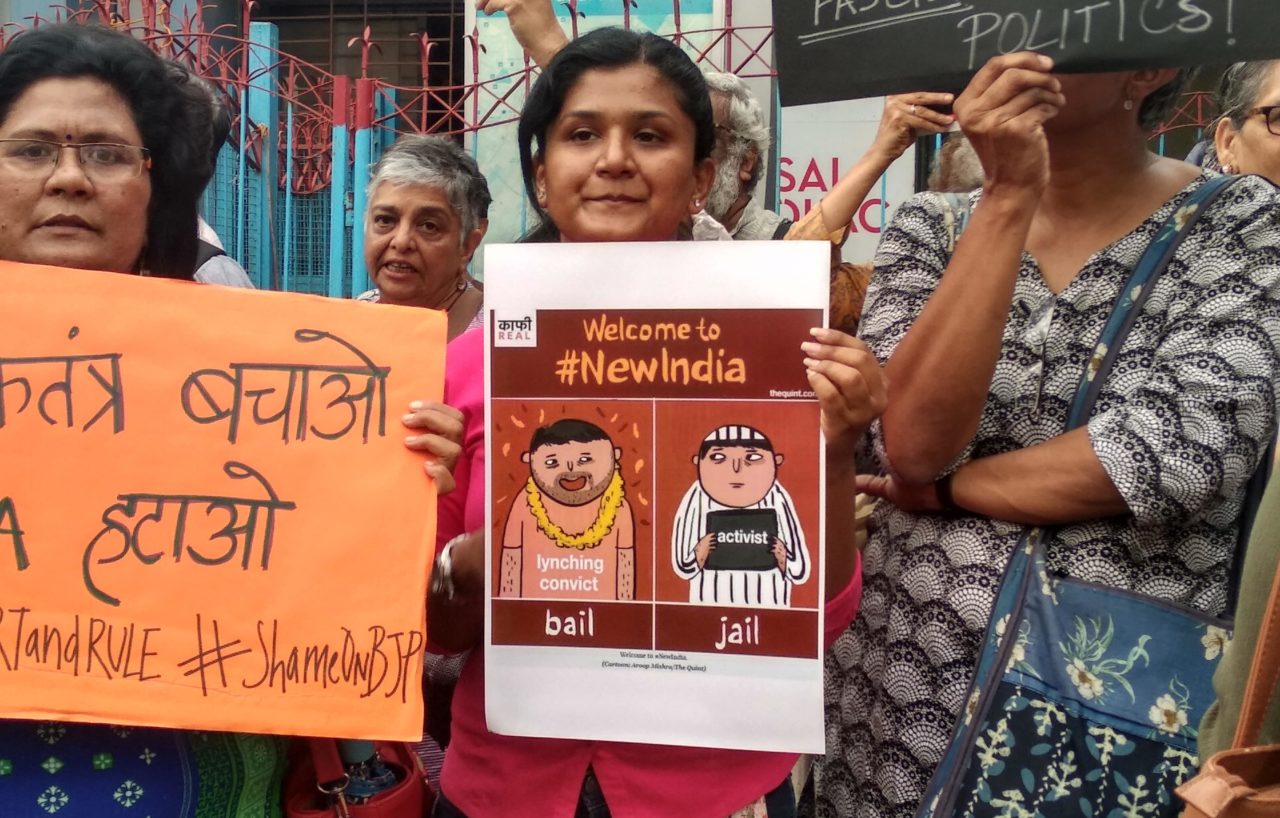 POLITICS!
बचाओ
हटाओ
andRULE #ShameONBJP
काफी
REAL
Welcome to
#NewIndia
thequint.com
lynching
convict
activist
bail
jail
Welcome to #NewIndia.
(Cartoon: Aroop Mishra/The Quint)